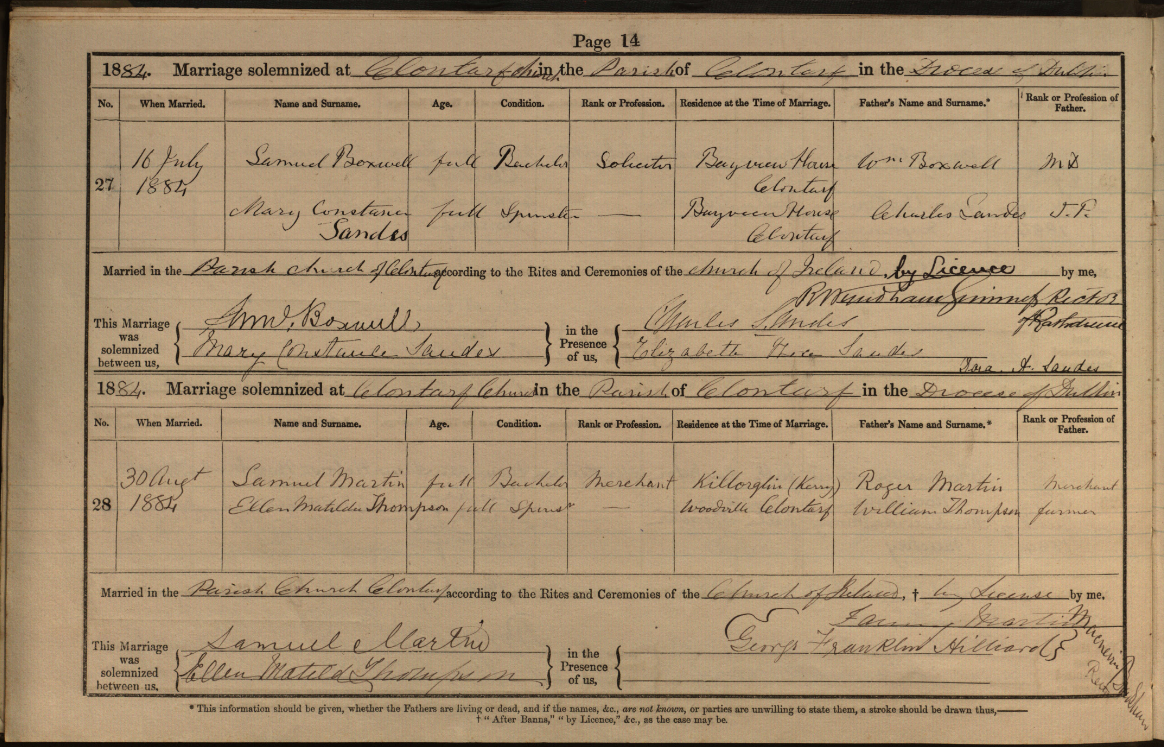 Page 14
1884. Marriage solemnized at Clontarf Church in the Parish of Clontarf in the Diocese of Dublin
No. When Married. Name and Surname. Age. Condition. Rank or Profession. Residence at the Time of Marriage. Father's Name and Surname.* Rank or Profession of Father.
27 16 July 1884 Samuel Boxwell full Bachelor Solicitor Bayview House Clontarf Wm Boxwell MD
Mary Constance Sandes full Spinster — Bayview House Clontarf Charles Sandes J.P.
Married in the Parish Church of Clontarf according to the Rites and Ceremonies of the Church of Ireland, by Licence by me,
R Wyndham Guinness Rector
of Rathdrum
This Marriage was solemnized between us,
Saml. Boxwell
Mary Constance Sandes
in the Presence of us,
Charles Sandes
Elizabeth Sandes
A. Sandes
1884. Marriage solemnized at Clontarf Church in the Parish of Clontarf in the Diocese of Dublin
No. When Married. Name and Surname. Age. Condition. Rank or Profession. Residence at the Time of Marriage. Father's Name and Surname.* Rank or Profession of Father.
28 30 Augt 1884 Samuel Martin full Bachelor Merchant Killorglin (Kerry) Roger Martin Merchant
Ellen Matilda Thompson full Spinst — Woodville Clontarf William Thompson farmer
Married in the Parish Church Clontarf according to the Rites and Ceremonies of the Church of Ireland, † by License by me,
This Marriage was solemnized between us,
Samuel Martin
Ellen Matild Thompson
in the Presence of us,
Martin
George Franklin Hilliard
* This information should be given, whether the Fathers are living or dead, and if the names, &c., are not known, or parties are unwilling to state them, a stroke should be drawn thus,——
† "After Banns," "by Licence," &c., as the case may be.